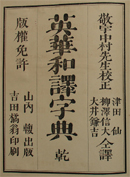 敬宇中村先生校正
津田仙
柳澤信大
大井鎌吉
仝譯
英華和譯字典
乾
版權免許
山内
輹出版
吉田
印刷